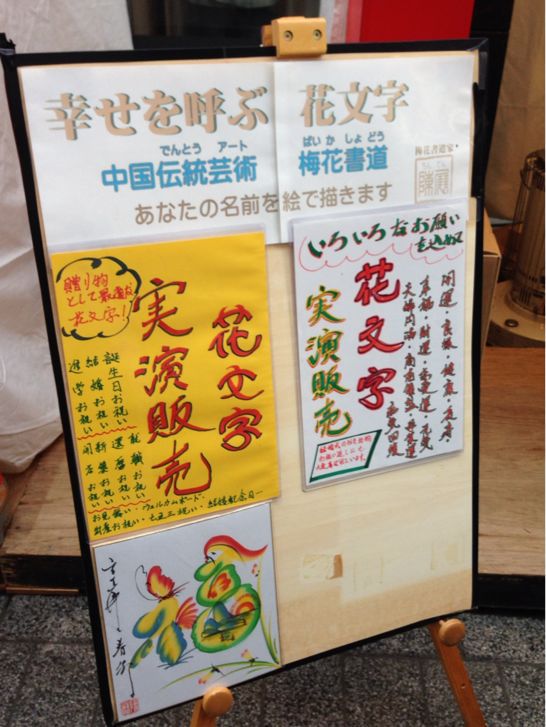 幸せを呼ぶ 花文字
でんとう アート
中国伝統芸術
ばい か しょ どう
梅花書道
梅花書道家
ちん でん
陳
あなたの名前を絵で描きます
贈り物
として最適な
花文字!
花文字
実演販売
誕生日お祝い
結婚お祝い
進学お祝い
就職お祝い
還暦お祝い
新築お祝い
開店お祝い
お見舞い・ウェルカムボード
出産お祝い・七五三祝い・結婚記念日
いろいろなお願い
を込めて
花文字
実演販売
開運・良縁・健康・長寿
幸福・財運・
夫婦円満・商売繁盛・
福